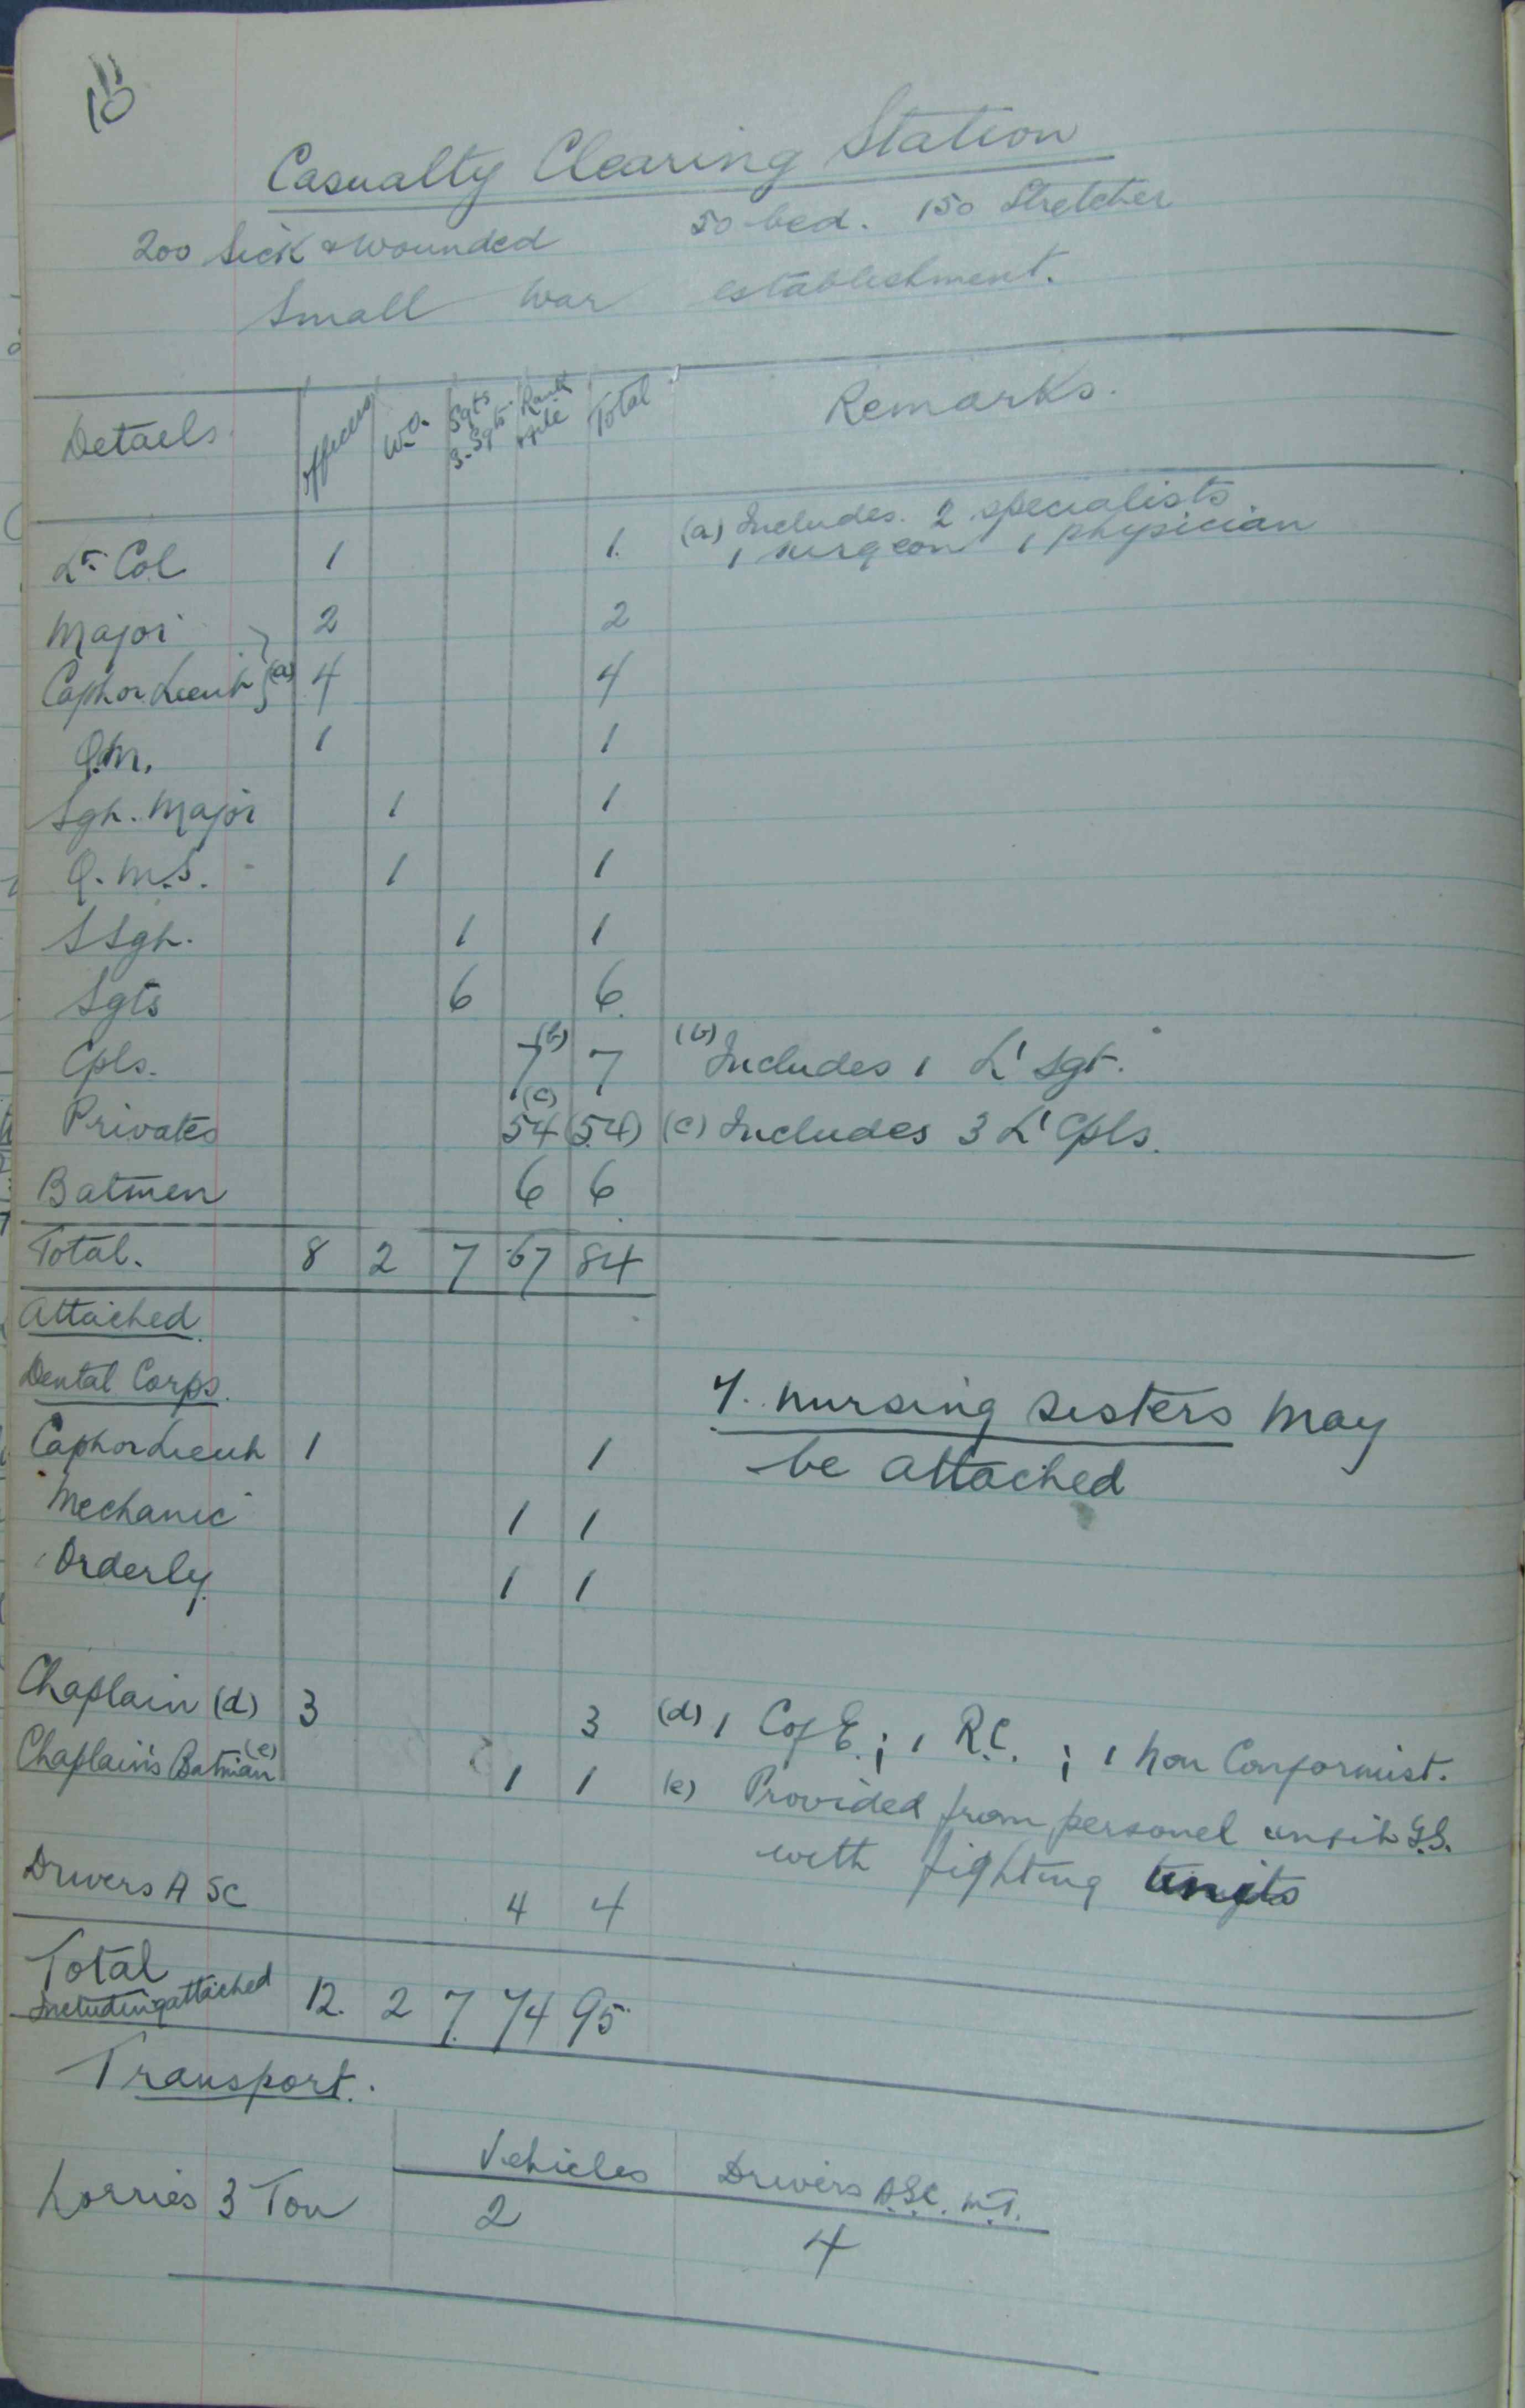 10
Casualty Clearing Station
200 Sick & wounded 50 bed. 150 Stretcher
Small War establishment.
Details Officers W.O. Sgts S-Sgts Rank & file Total Remarks.
Lt. Col 1 1. (a) Includes 2 specialists
1 surgeon 1 physician
Major 2 2
Capt or Lieut (a) 4 4
Q.M. 1 1
Sgt. Major 1 1
Q.M.S. 1 1
SSgt. 1 1
Sgts 6 6
Cpls. 7 (b) 7 (b) Includes 1 L' Sgt.
Privates (c) 54 (54) (c) Includes 3 L' Cpls.
Batmen 6 6
Total. 8 2 7 67 84
Attached.
Dental Corps.
7. nursing sisters may
Capt or Lieut 1 1
be attached
Mechanic 1 1
Orderly 1 1
Chaplain (d) 3 3 (d) 1 C of E.; 1 R.C. ; 1 Non Conformist.
Chaplain's Batman (e) 1 1 (e) Provided from personel unfit G.S.
with fighting units
Drivers A SC 4 4
Total
Including attached 12. 2 7. 74 95
Transport.
Vehicles Drivers A.S.C. M.T.
Lorries 3 Ton 2 4